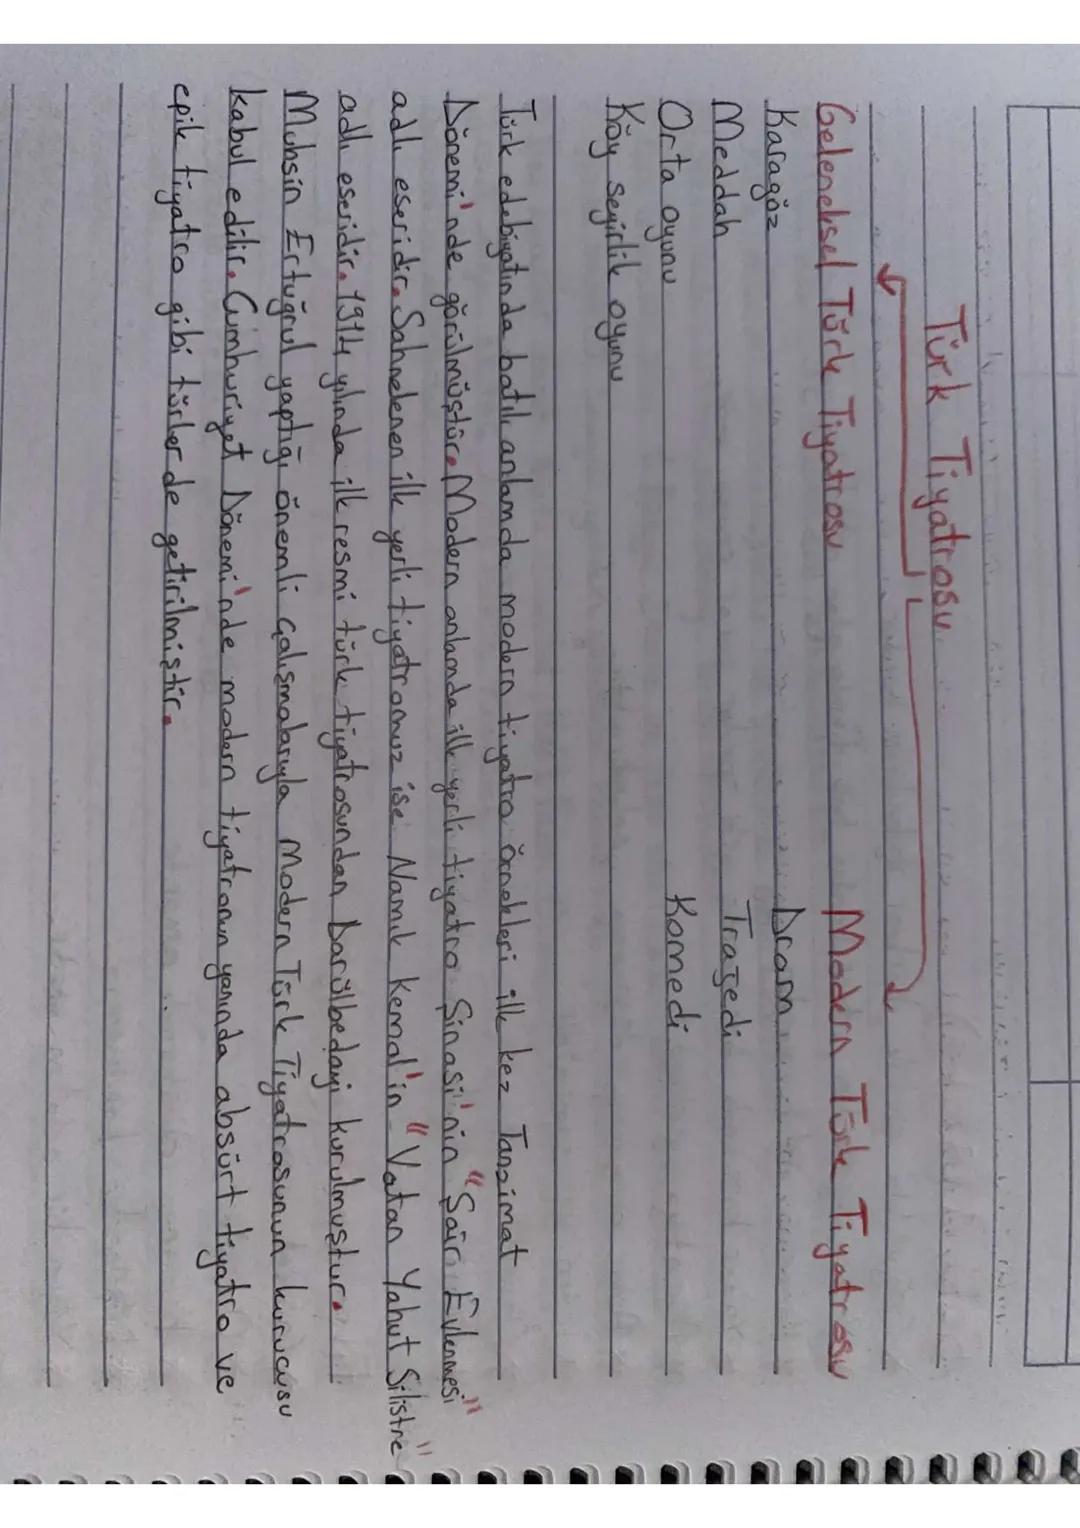 Türk Tiyatrosu
Geleneksel Türk Tiyatrosu Modern Türk Tiyatrosu
Karagöz Dram
Meddah Trajedi
Orta oyunu Komedi
Köy seyirlik oyunu
Türk edebiyatında batılı anlamda modern tiyatro örnekleri ilk kez Tanzimat
Dönemi'nde görülmüştür. Modern anlamda ilk yerli tiyatro Şinasi'nin "Şair Evlenmesi"
adlı eseridir. Sahnelenen ilk yerli tiyatromuz ise Namık Kemal'in "Vatan Yahut Silistre"
adlı eseridir. 1914 yılında ilk resmi türk tiyatrosundan Darülbedayi kurulmuştur.
Muhsin Ertuğrul yaptığı önemli çalışmalarıyla Modern Türk Tiyatrosunun kurucusu
kabul edilir. Cumhuriyet Dönemi'nde modern tiyatronun yanında absürt tiyatro ve
epik tiyatro gibi türler de getirilmiştir.